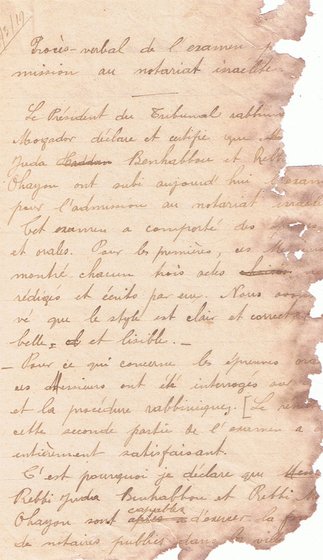 Procès-verbal de l'examen
mission au notariat israélite
Le Président du Tribunal rabbin
Mogador déclare et certifie que
Juda Haddan Benhabbou et Reb
Ohayon ont subi aujourd'hui l'exam
pour l'admission au notariat israé
Cet examen a comporté des
et orales. Pour les premières, ces
montré chacun trois actes
rédigés et écrits par eux. Nous avons
vé que le style est clair et correct
belle et lisible. _
_ Pour ce qui concerne les épreuves ora
ces Messieurs ont été interrogés sur
et la procédure rabbiniques. [Le rés
cette seconde partie de l'examen a
entièrement satisfaisant.
C'est pourquoi je déclare que
Rebbi Juda Benhabbou et Rebbi M
capables
Ohayon sont après d'exercer la
de notaires publics dans la ville